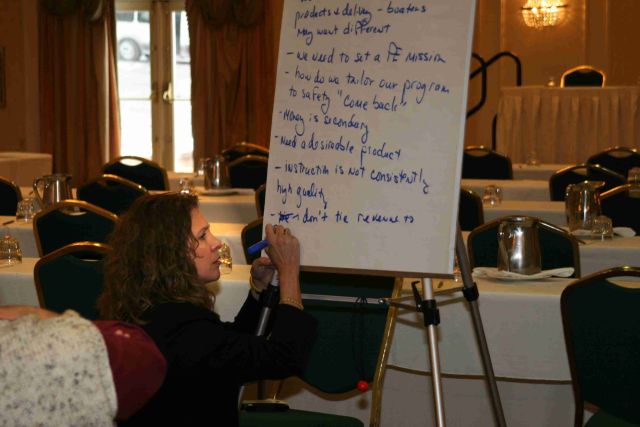 products & delivery - boaters
may want different
- we need to set a PE mission
- how do we tailor our program
to safety "come back"
- Money is secondary
- Need a desirable product
- instruction is not consistently
high quality
- don't tie revenue to